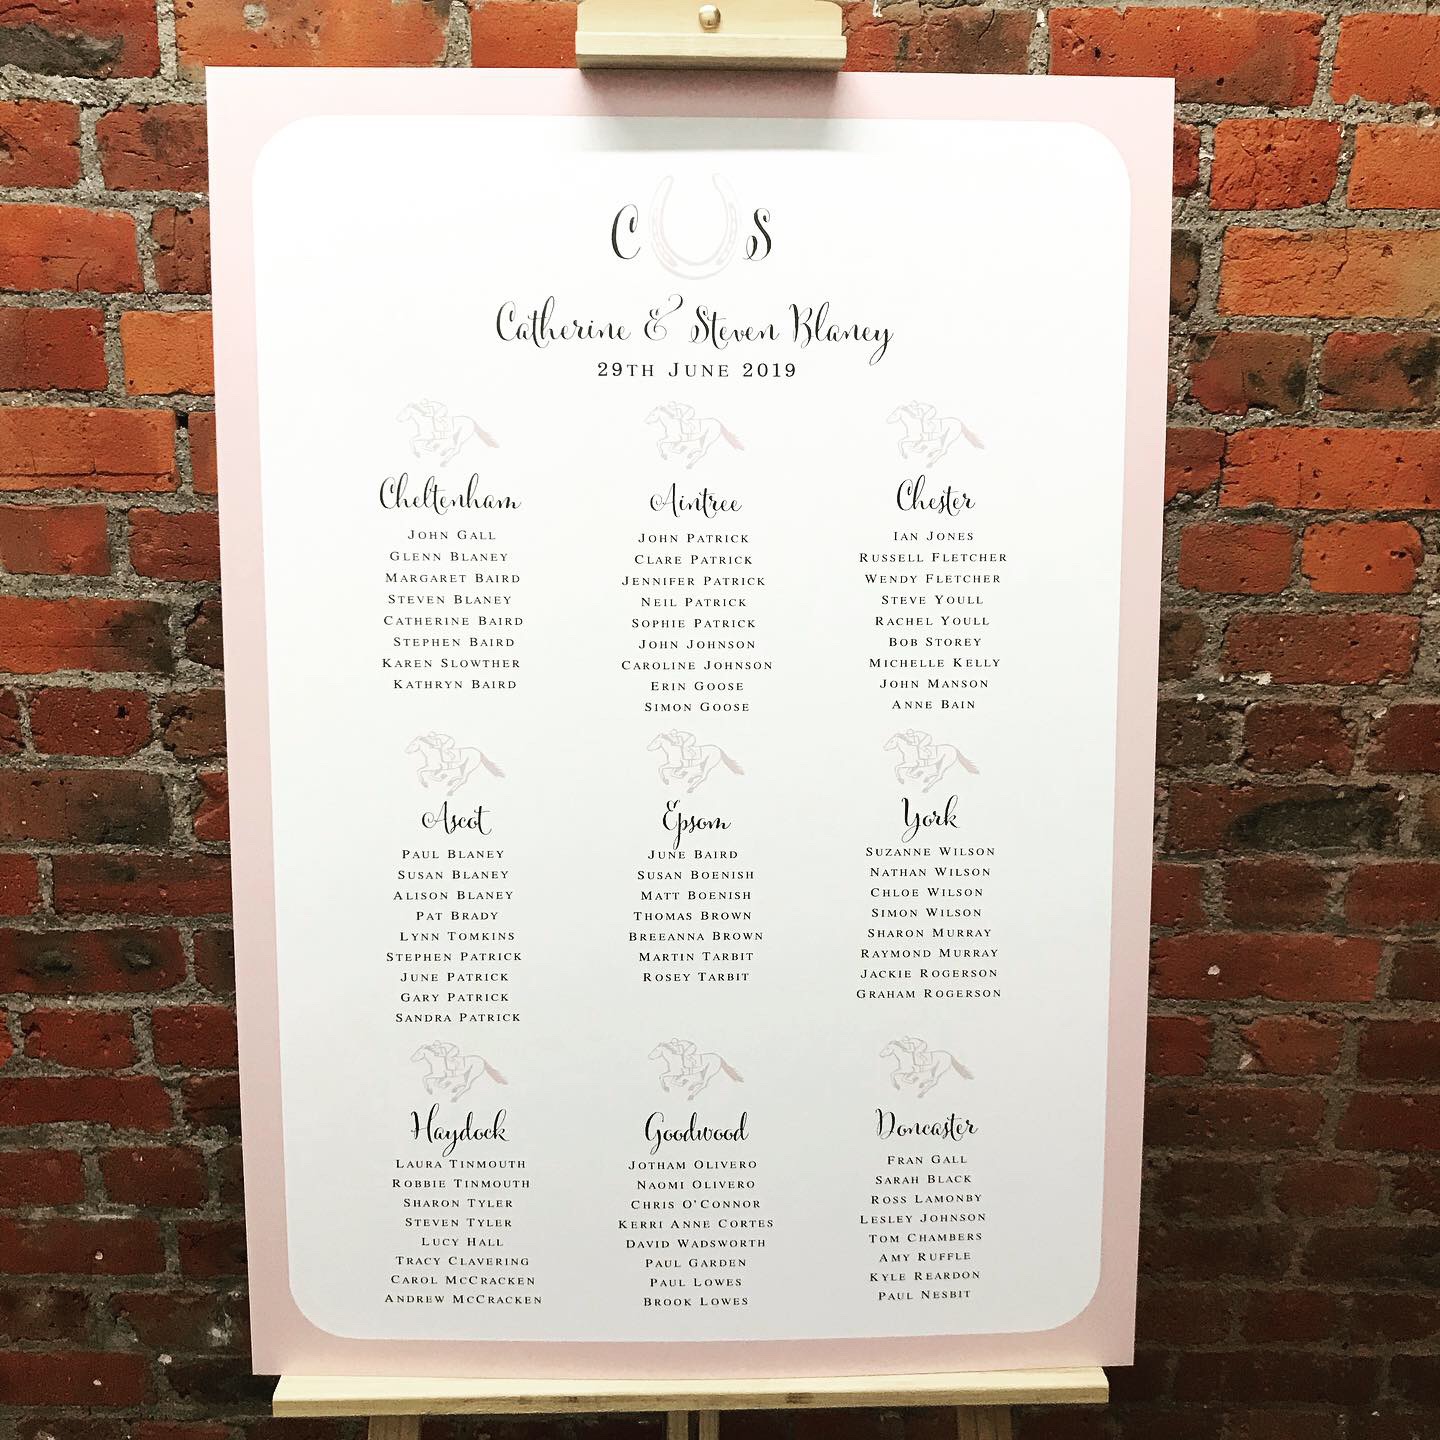 C S
Catherine & Steven Blaney
29th June 2019
Cheltenham
John Gall
Glenn Blaney
Margaret Baird
Steven Blaney
Catherine Baird
Stephen Baird
Karen Slowther
Kathryn Baird
Aintree
John Patrick
Clare Patrick
Jennifer Patrick
Neil Patrick
Sophie Patrick
John Johnson
Caroline Johnson
Erin Goose
Simon Goose
Chester
Ian Jones
Russell Fletcher
Wendy Fletcher
Steve Youll
Rachel Youll
Bob Storey
Michelle Kelly
John Manson
Anne Bain
Ascot
Paul Blaney
Susan Blaney
Alison Blaney
Pat Brady
Lynn Tomkins
Stephen Patrick
June Patrick
Gary Patrick
Sandra Patrick
Epsom
June Baird
Susan Boenish
Matt Boenish
Thomas Brown
Breeanna Brown
Martin Tarbit
Rosey Tarbit
York
Suzanne Wilson
Nathan Wilson
Chloe Wilson
Simon Wilson
Sharon Murray
Raymond Murray
Jackie Rogerson
Graham Rogerson
Haydock
Laura Tinmouth
Robbie Tinmouth
Sharon Tyler
Steven Tyler
Lucy Hall
Tracy Clavering
Carol McCracken
Andrew McCracken
Goodwood
Jotham Olivero
Naomi Olivero
Chris O'Connor
Kerri Anne Cortes
David Wadsworth
Paul Garden
Paul Lowes
Brook Lowes
Doncaster
Fran Gall
Sarah Black
Ross Lamonby
Lesley Johnson
Tom Chambers
Amy Ruffle
Kyle Reardon
Paul Nesbit